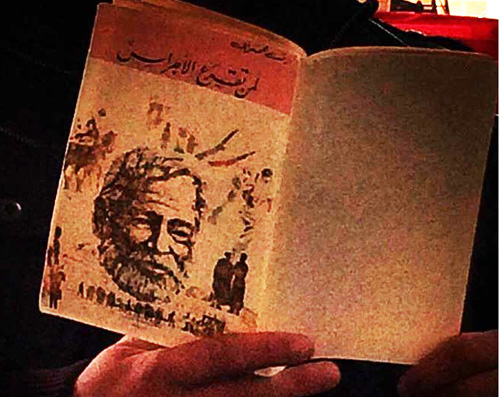 لمن تقرع الأجراس